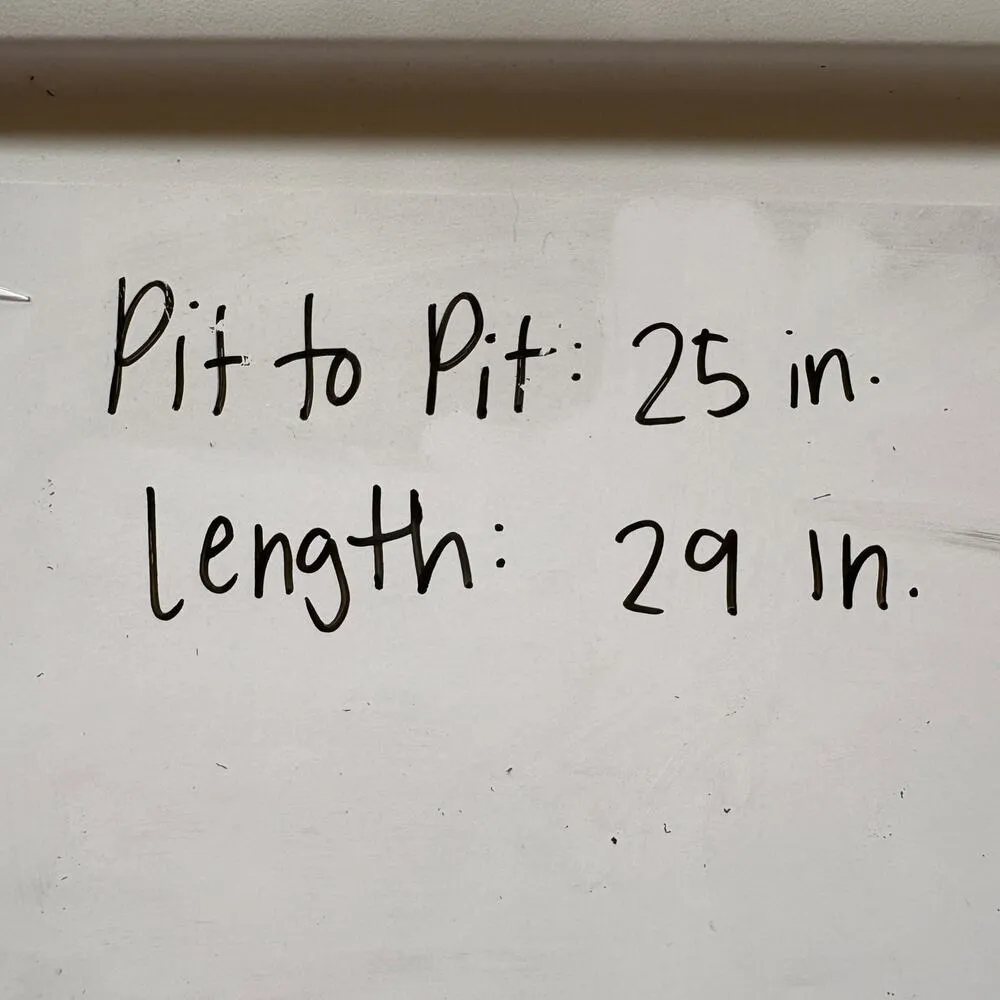 Pit to Pit: 25 in.
Length: 29 in.